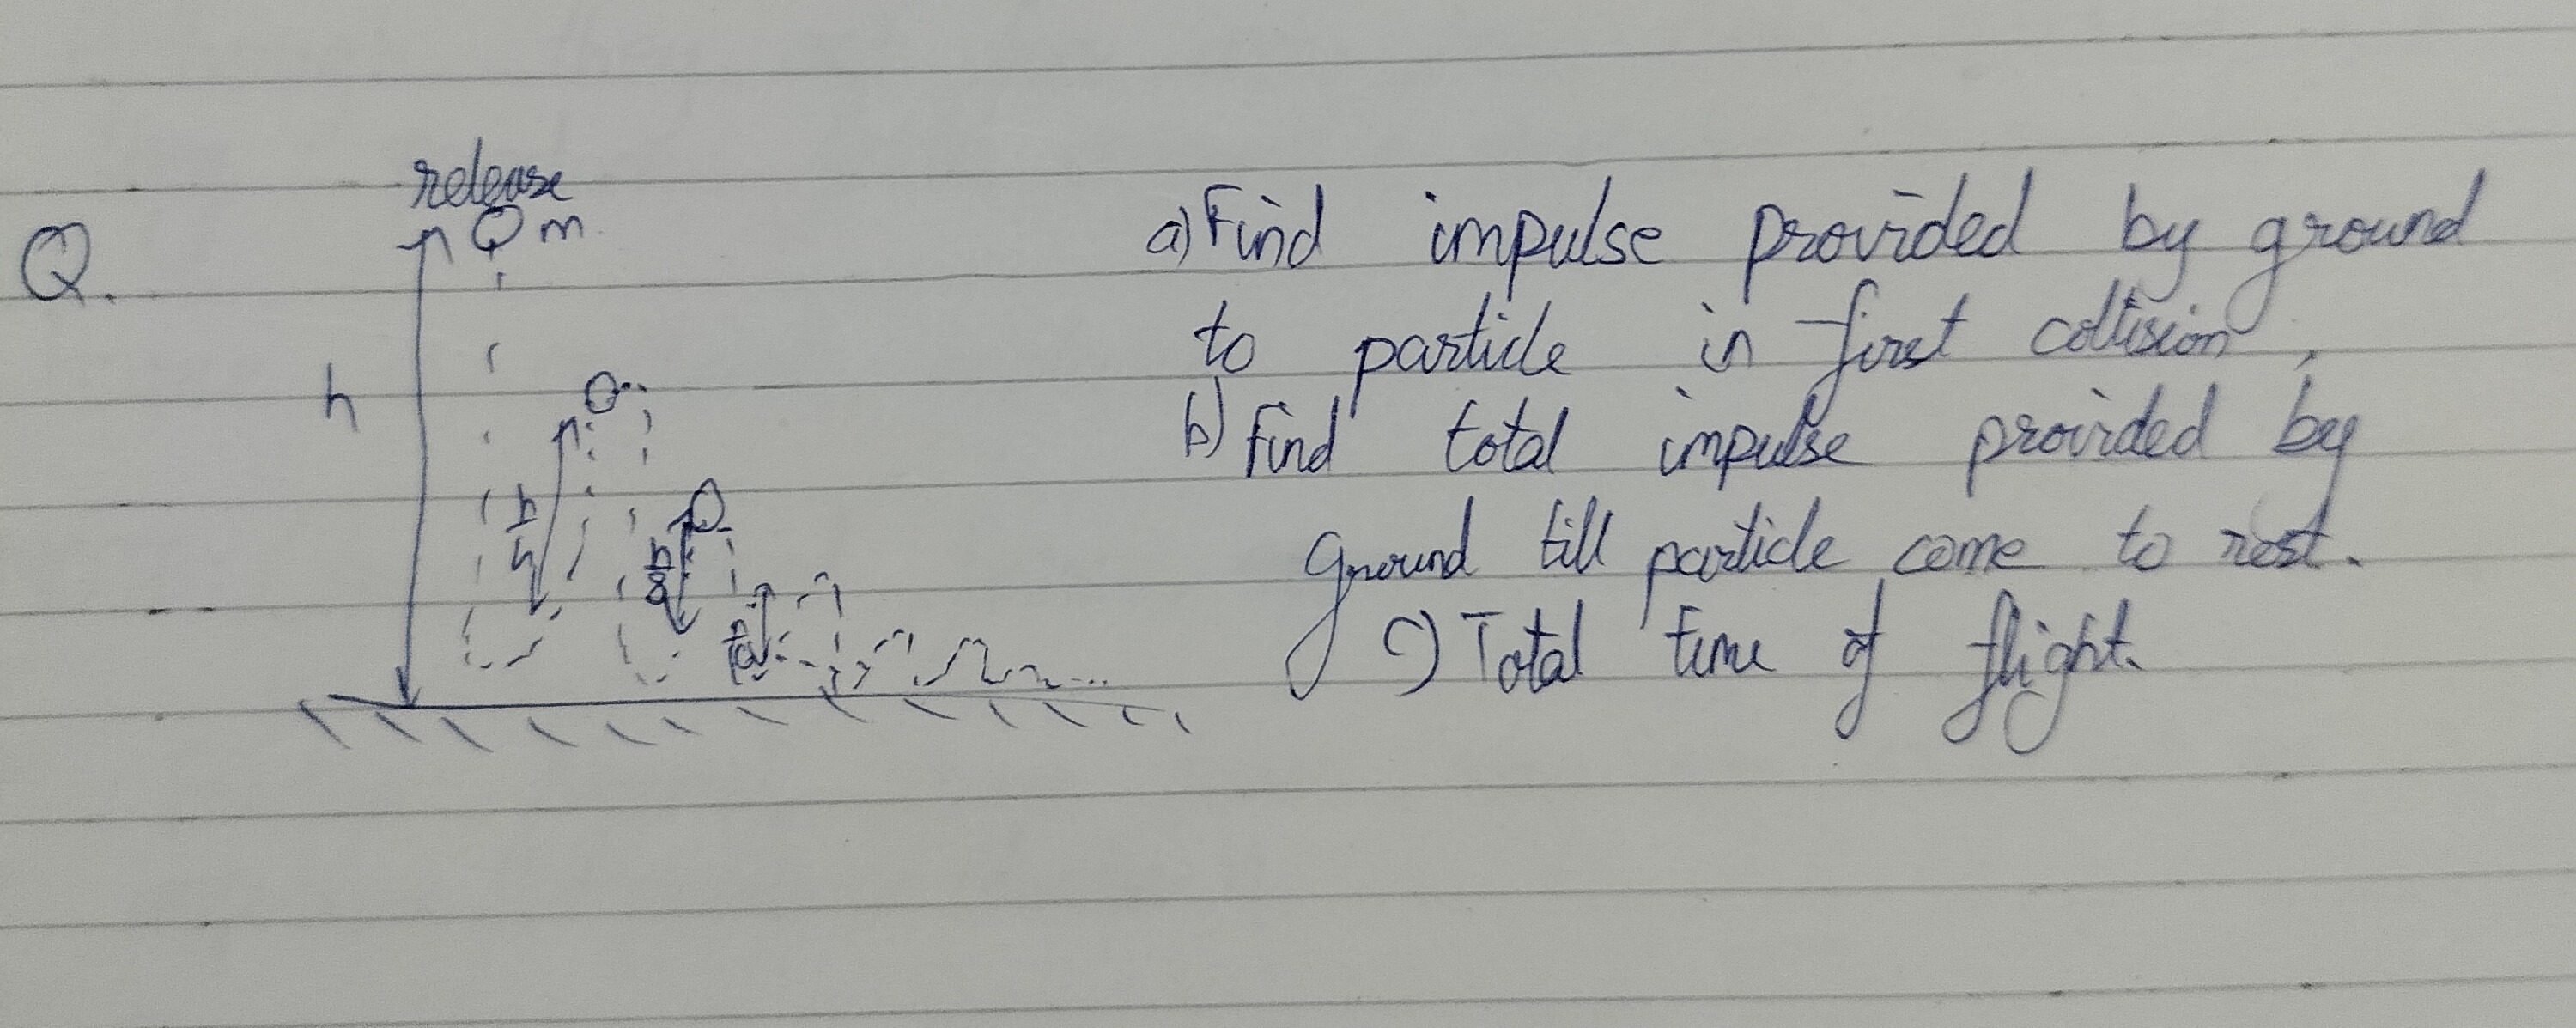 release
Q. m
a) Find impulse provided by ground
to particle in first collision,
h
b) Find total impulse provided by
h
h/8
ground till particle come to rest.
c) Total time of flight.